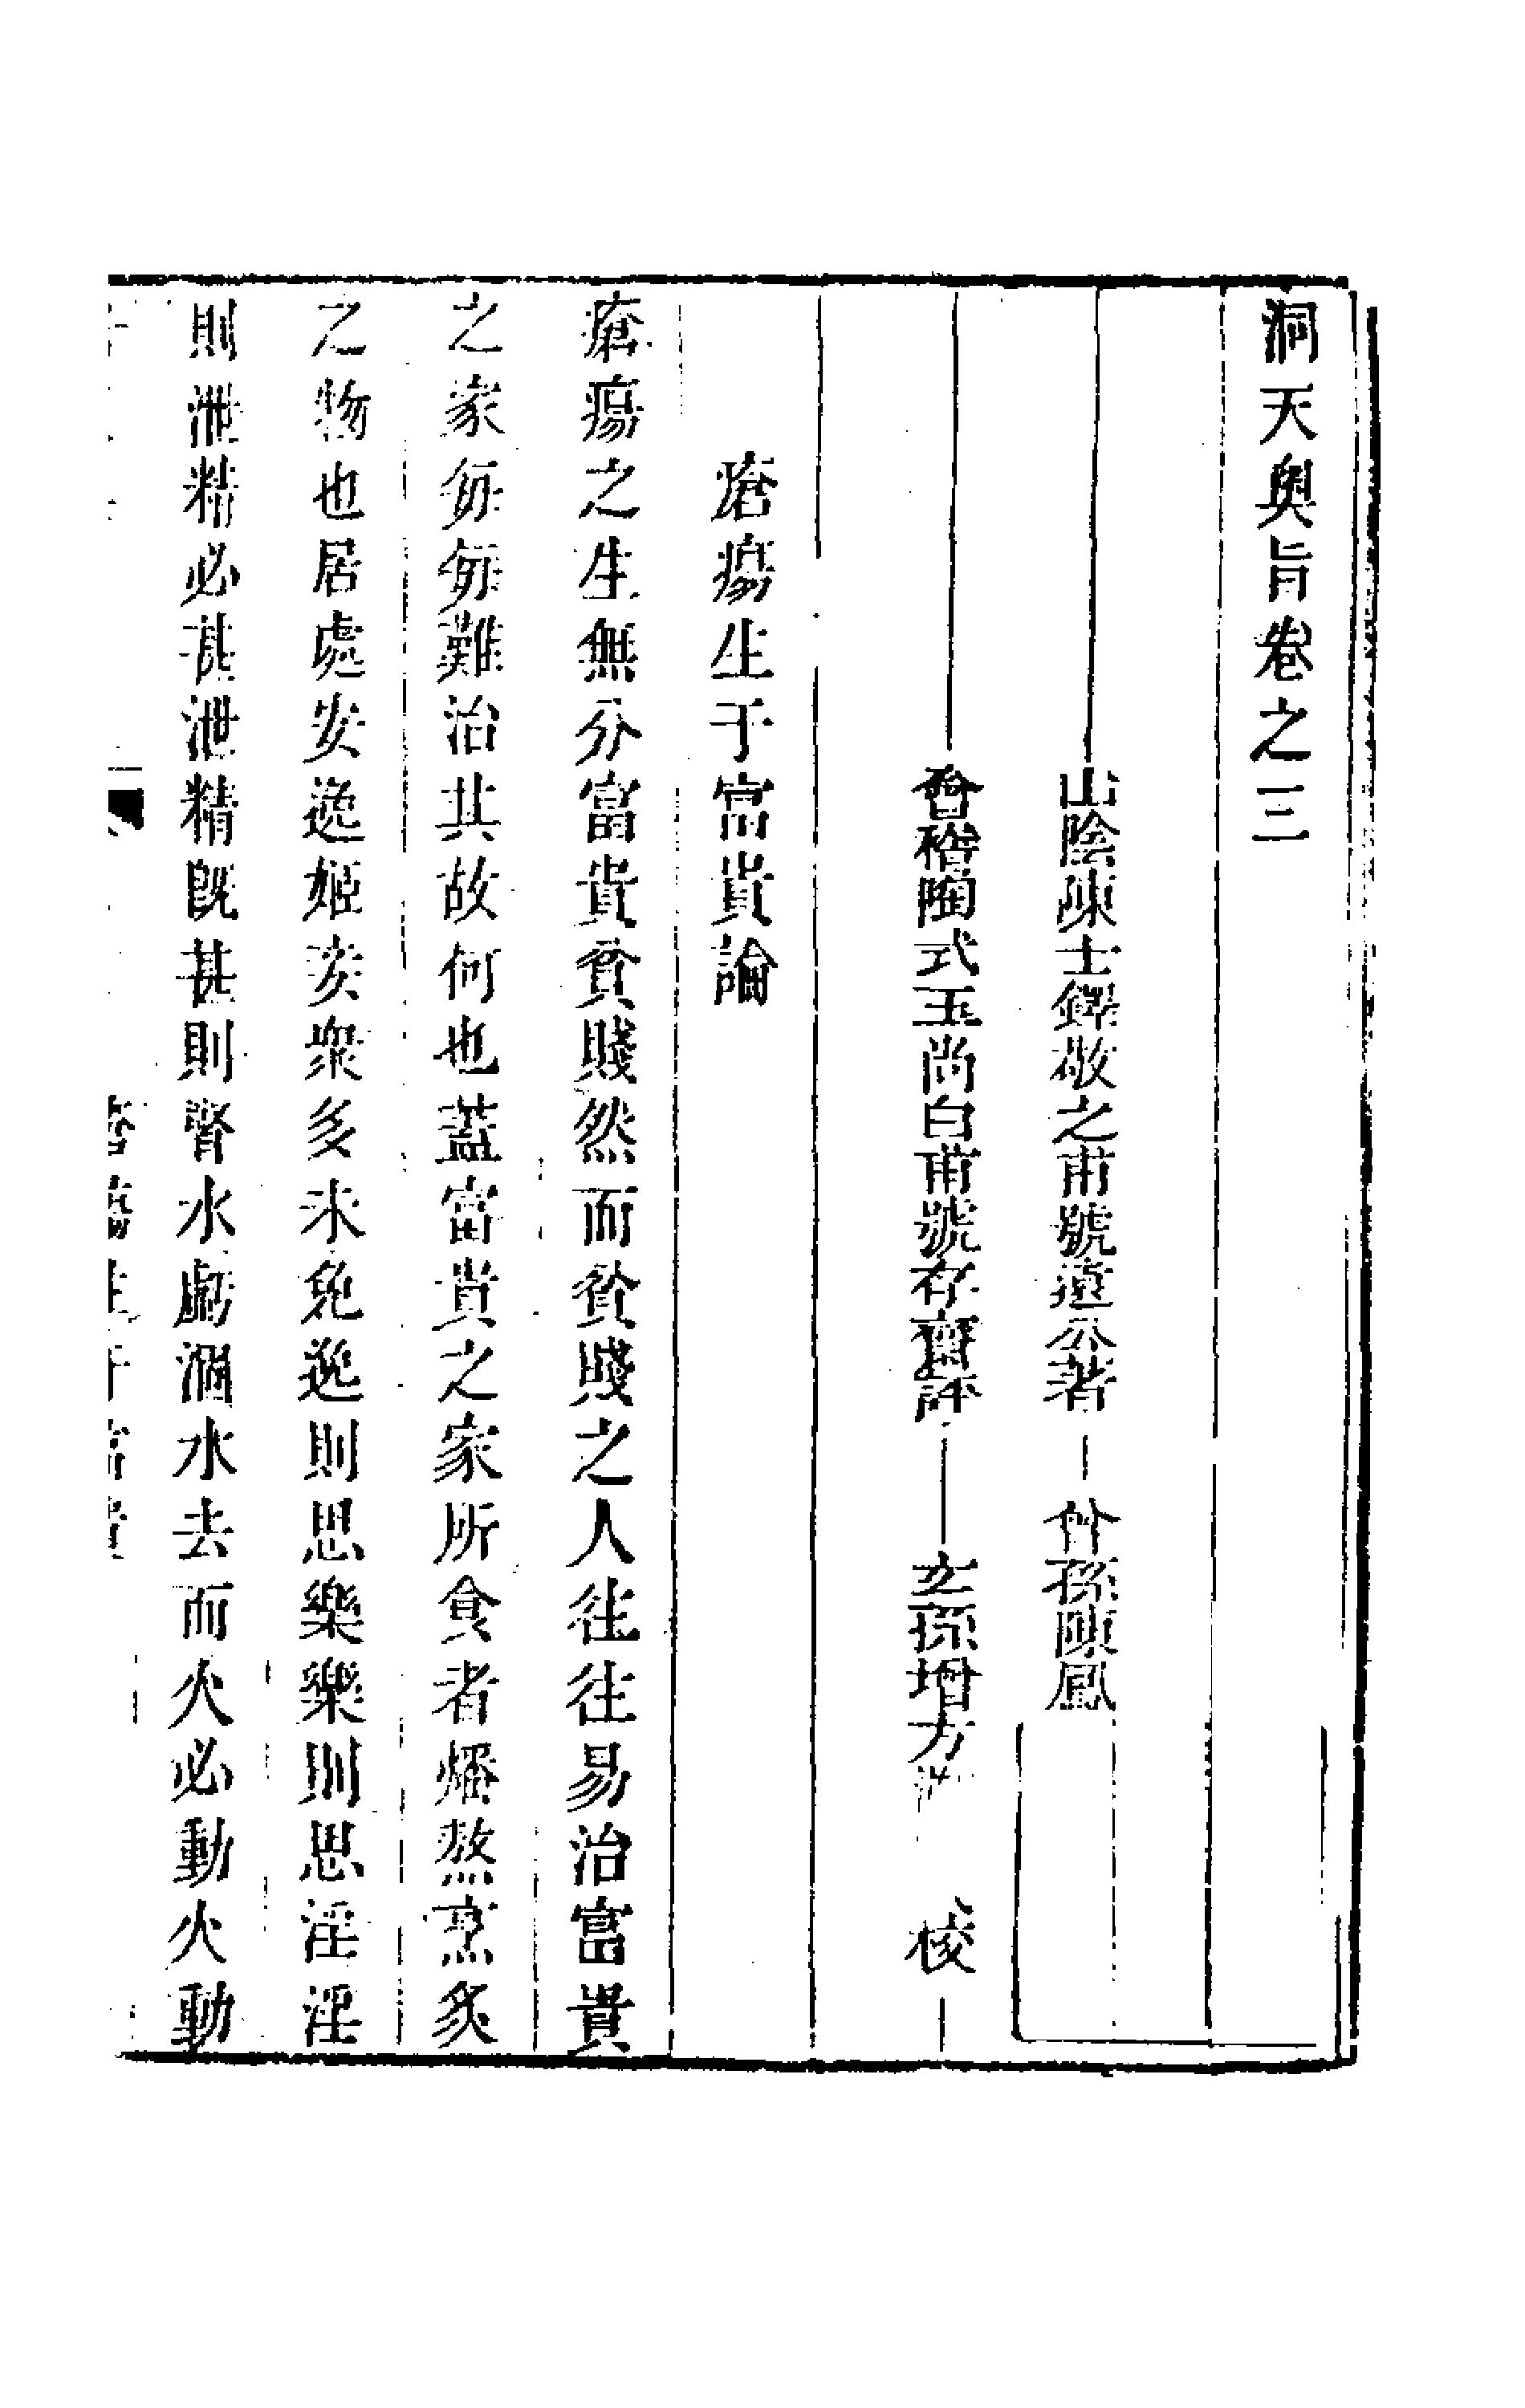 洞天奥旨卷之三
山陰陳士鐸敬之甫號遠公著 孫陳鳳
會稽陶式玉尚白甫號存齋評 玄孫增方 校
瘡瘍生于富貴論
瘡瘍之生無分富貴貧賤然而貧賤之人往往易治富貴
之家每每難治其故何也蓋富貴之家所食者燔熬烹炙
之物也居處安逸姬妾衆多未免逸則思樂樂則思淫淫
則泄精必甚泄精既甚則腎水虧涸水去而火必動火動